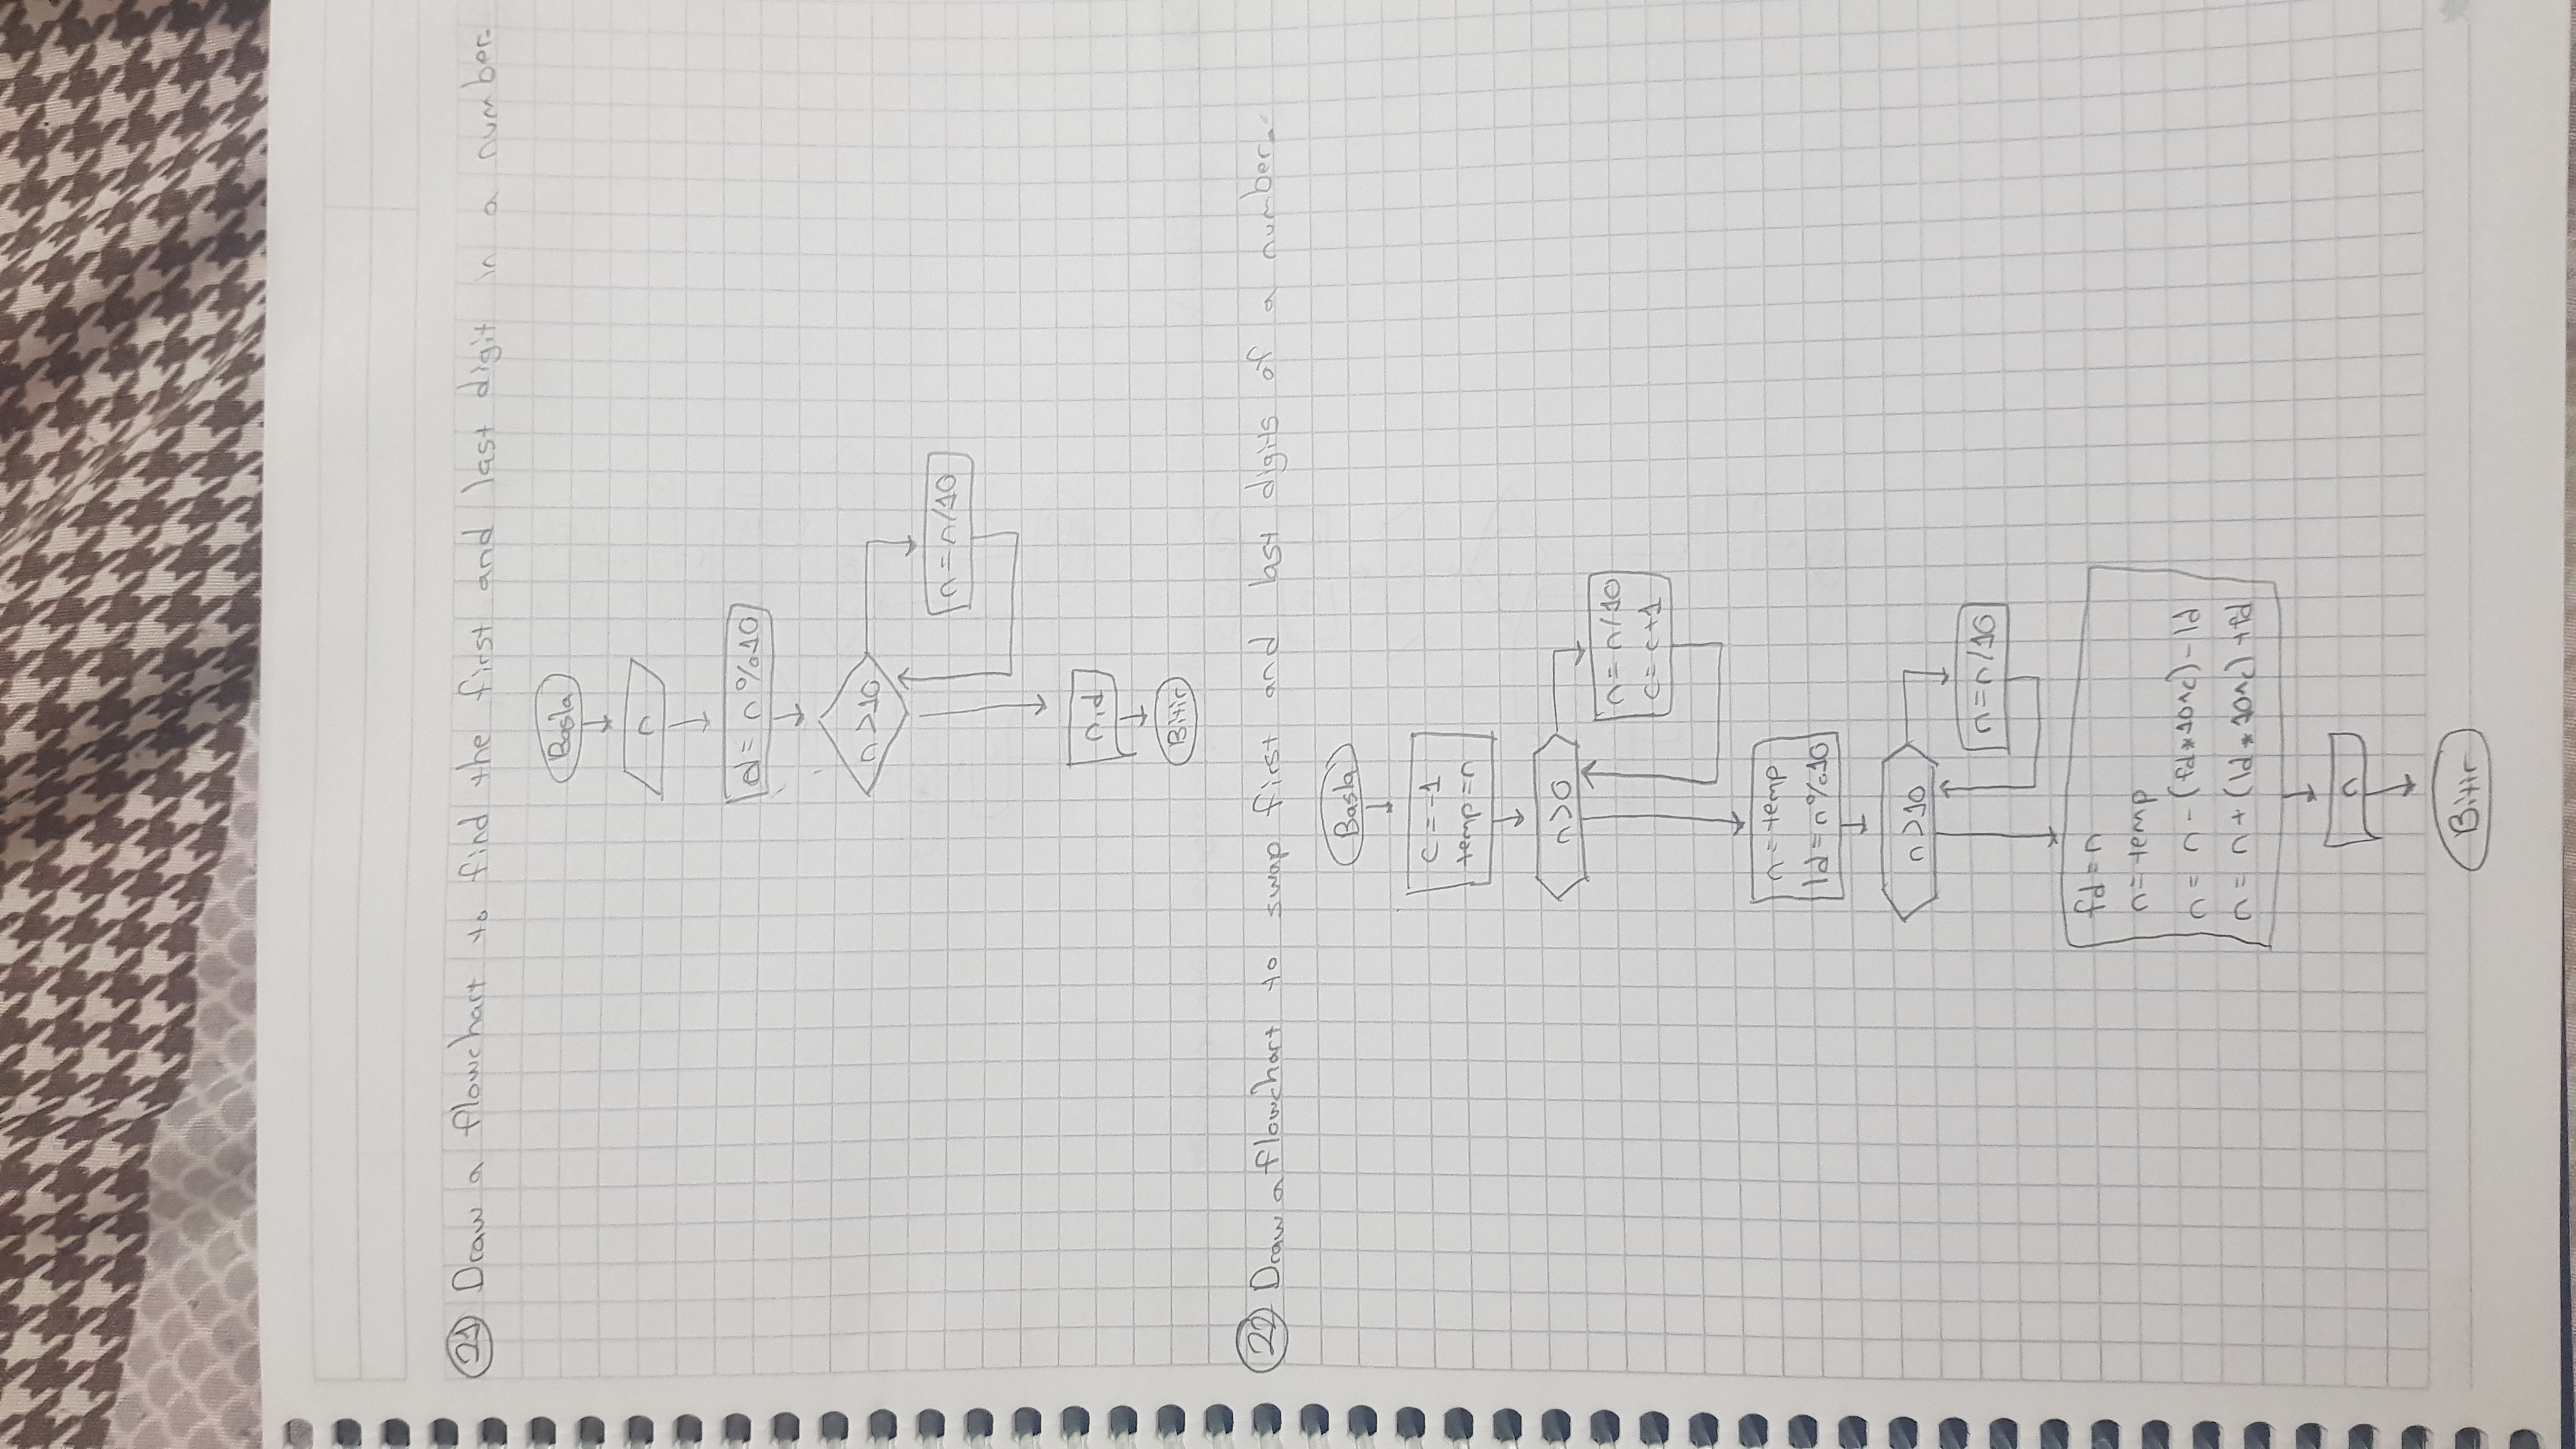 21 Draw a flowchart to find the first and last digit in a number.
Basla
n
d = n % 10
n > 10
n = n/10
n,d
Bitir
22 Draw a flowchart to swap first and last digits of a number.
Basla
c = -1
temp = n
n > 0
n = n/10
c = c+1
n = temp
ld = n % 10
n > 10
n = n/10
fd = n
n = temp
n = n - (fd*10^c) - ld
n = n + (ld * 10^c) + fd
n
Bitir